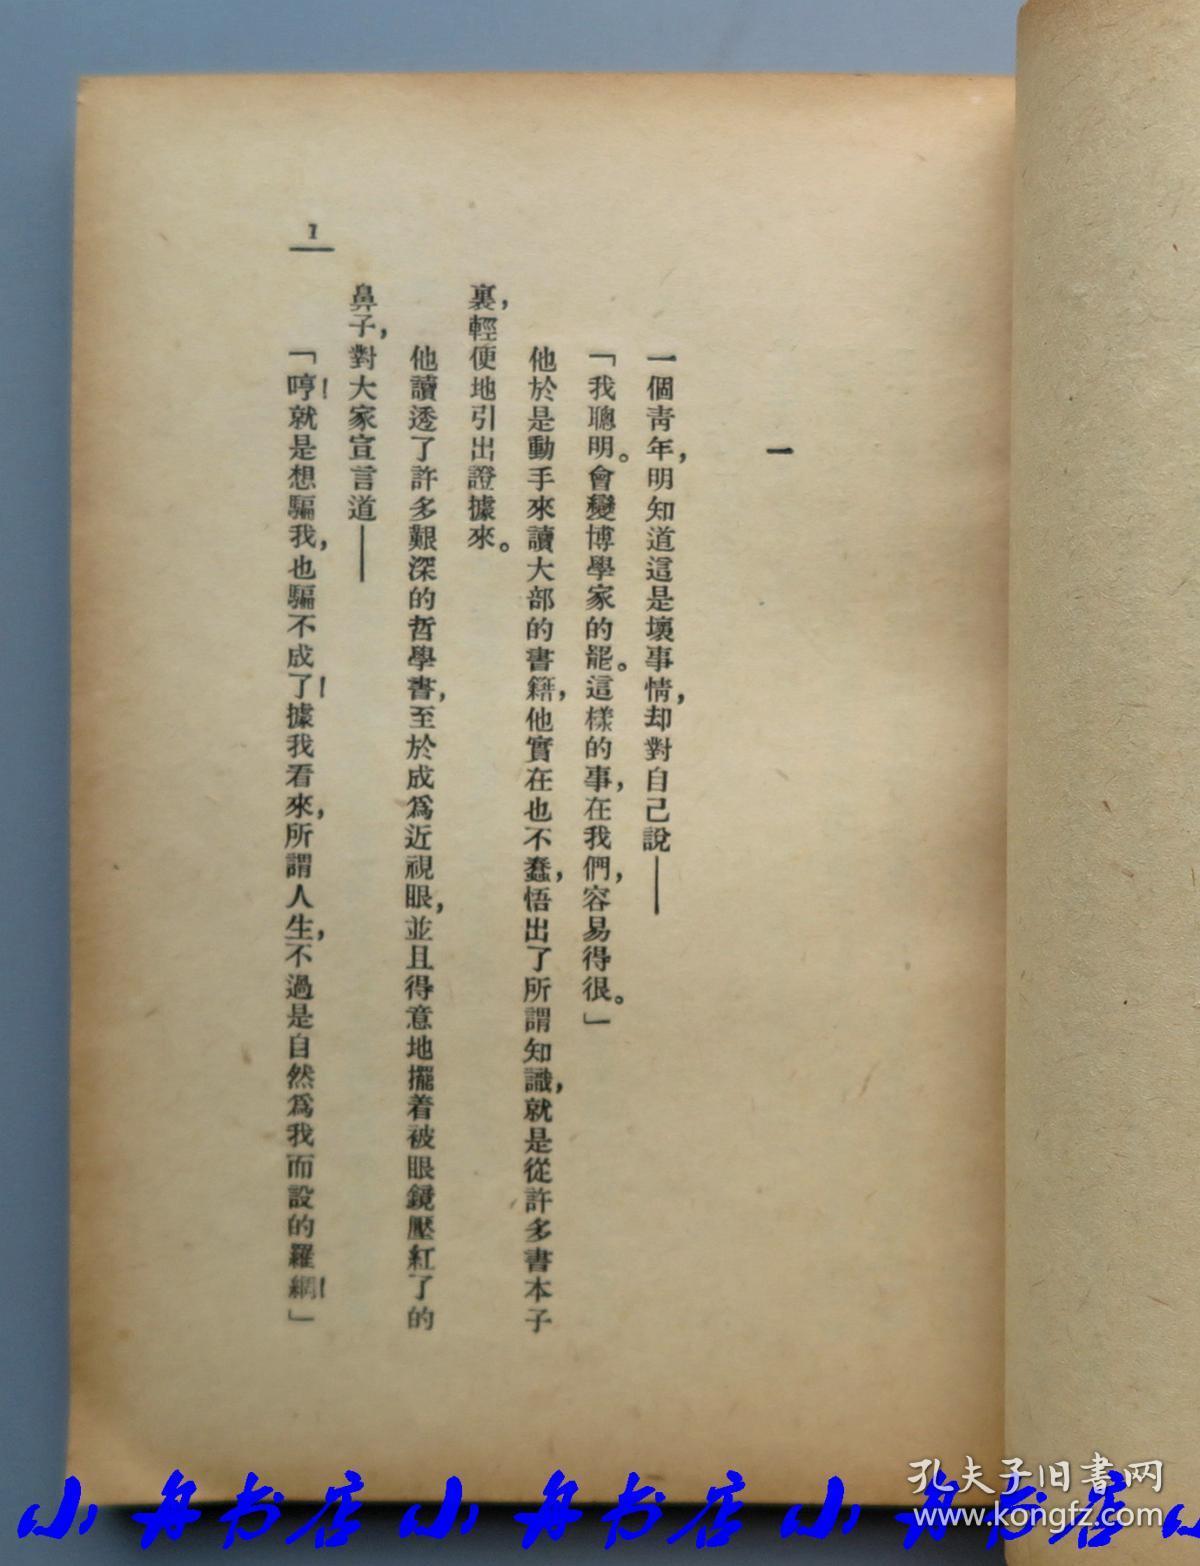 一
一個靑年，明知道這是壞事情，却對自己說——
「我聰明。會變博學家的罷。這樣的事，在我們，容易得很。」
他於是動手來讀大部的書籍，他實在也不蠢，悟出了所謂知識，就是從許多書本子
裏，輕便地引出證據來。
他讀透了許多艱深的哲學書，至於成爲近視眼，並且得意地擺着被眼鏡壓紅了的
鼻子，對大家宣言道——
「哼！就是想騙我，也騙不成了！據我看來，所謂人生，不過是自然爲我而設的羅網！」
1
孔夫子旧書网
www.kongfz.com
小舟书店 小舟书店 小